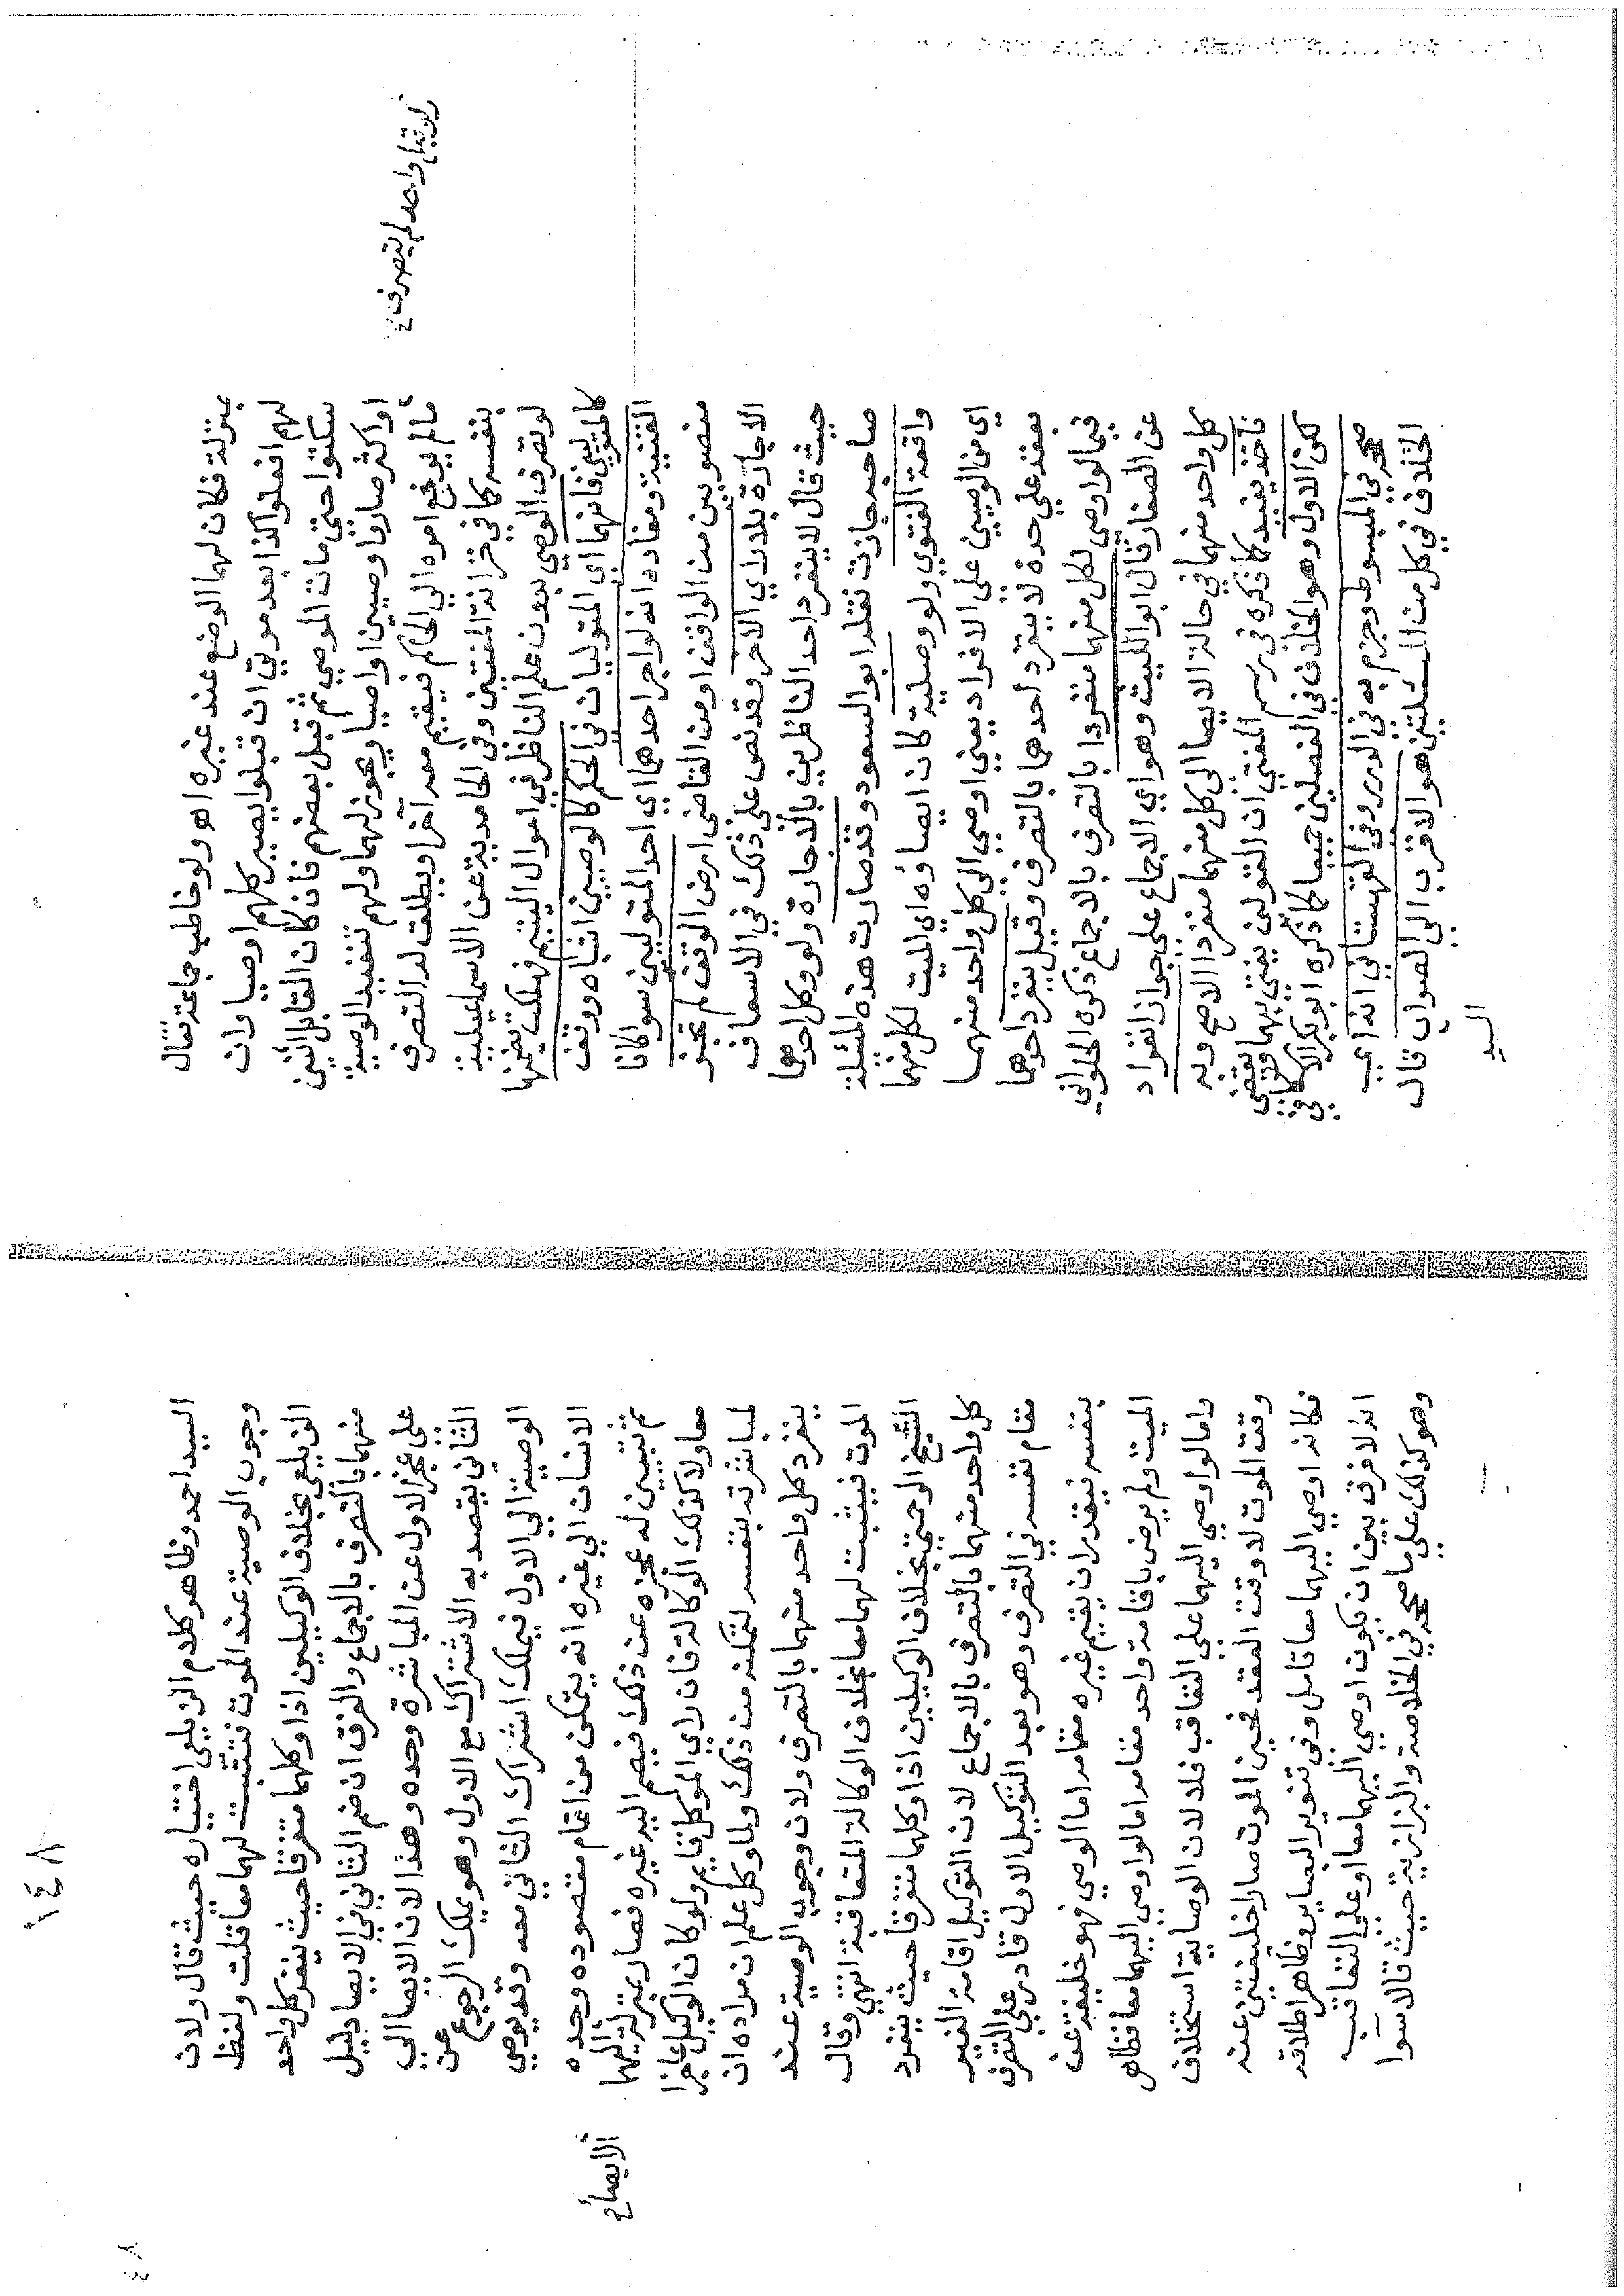 بمنزلة فكان لهما الوضع عند غيره اهـ ولو خاطب جماعة فقال
لهم افعلوا كذا بعد موتي ان قبلوا يصير كلهم اوصيا وان
سكتوا حتي مات الموصي ثم قبل بعضهم فان كان القابل اثنين
او اكثر صارو اوصيين او اوصيا ويجوز لهما ولهم تنفيذ الوصية
وان قبل واحد لم يتصرف صح
مالم يرفع امره الي الحاكم فيقيم معه آخر او يطلق له التصرف
بنفسه كما في خزانة المفتين وفي الحامدية عن الاسماعيلية
لو تصرف الوصي بدون علم الناظر في اموال اليتيم فهلكت يضمنها
كالمتوليين فانهما اي المتوليان في الحكم كالوصيين اشباه ووقف
القنية ومفاده انه لو اجر احدهما اي احد المتوليين سوا كانا
منصوبين من الواقف او من القاضي ارض الوقف لم تجز
الاجارة بلا راي الاخر وقد نص علي ذلك في الاسعاف
حيث قال لا ينفرد احد الناظرين بالاجارة ولو وكل احدهما
صاحبه جازت نقله ابو السعود وقد صارت هذه المسئلة
واقعة الفتوي ولو وصلية كان ايصاؤه اي الميت لكل منهما
اي من الوصيين علي الانفراد يعني اوصي الي كل واحد منهما
بعقد علي حدة لا ينفرد احدهما بالتصرف وقيل ينفرد احدهما
فيما لو اوصي لكل منهما منفردا بالتصرف بالاجماع ذكره الحلواني
عن الصفار قال ابو الليث وهو اي الاجماع علي جواز انفراد
كل واحد منهما في حالة الايصا الي كل منهما منفردا الاصح وبه
ناخذ يفيد كما ذكره في رسم المفتي ان القولين يفتي بهما
لكن الاول وهو الخلاف في الفصلين جميعا كما ذكره ابو بكر الاسكافي
صححه في المبسوط وجزم به في الدرر وفي القهستاني انه اي
الخلاف في كل من المسئلتين هو الاقرب الي الصواب قال
السيد
١٤٨
السيد احمد وظاهر كلام الزيلعي اختياره حيث قال ولان
وجوب الوصية عند الموت فتثبت لهما معا قلت ولفظ
الزيلعي بخلاف الوكيلين اذا وكلهما متفرقا حيث ينفرد كل واحد
منهما بالتصرف بالاجماع والفرق ان ضم الثاني في الايصا دليل
علي عجز الاول عن المباشرة وحده وهذا لان الايصا الي
الثاني يقصد به الاشتراك مع الاول وهو يملك الرجوع عن
الوصية الي الاول فيملك اشراك الثاني معه وقد يوصي
الانسان الي غيره انه يتمكن من اتمام مقصوده وحده
ثم تبين له عجزه عن ذلك فيضم اليه غيره فصار بمنزلة اليهما
الايصا صح
معا ولا كذلك الوكالة فان راي الموكل قايم ولو كان الوكيل عاجزا
لمباشرته بنفسه لتمكنه من ذلك ولما وكل علم ان مراده ان
ينفرد كل واحد منهما بالتصرف ولان وجوب الوصية عند
الموت فيثبت لهما معا بخلاف الوكالة المتعاقبة انتهي وقال
الشيخ الرحمتي بخلاف الوكيلين اذا وكلهما متفرقا حيث ينفرد
كل واحد منهما بالتصرف بالاجماع لان التوكيل اقامة الغير
مقام نفسه في التصرف وهو بعد التوكيل الاول قادر علي التصرف
بنفسه فيقدر ان يقيم غيره مقامه اما الوصي فهو خليفته عن
الميت ولم يرض باقامة واحد مقامه اما لو اوصي اليهما معا فظاهر
واما لو اوصي اليهما علي التعاقب فلا لان الوصاية استخلاف
وقت الموت لا وقت العقد فحين الموت صارا خليفتين عنه
فكانه اوصي اليهما معا تامل وفي تنوير البصاير وظاهر اطلاقه
انه لا فرق بين ان يكون اوصي اليهما معا او علي التعاقب
وهو كذلك علي ما صححه في الخلاصة والبزازية حيث قالا سوا